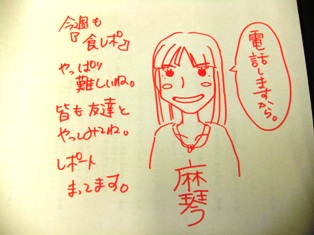 今週も
『食レポ』
やっぱり
難しいね。
皆も友達と
やってみてね。
レポート
まってます。
電話しますから。
麻琴